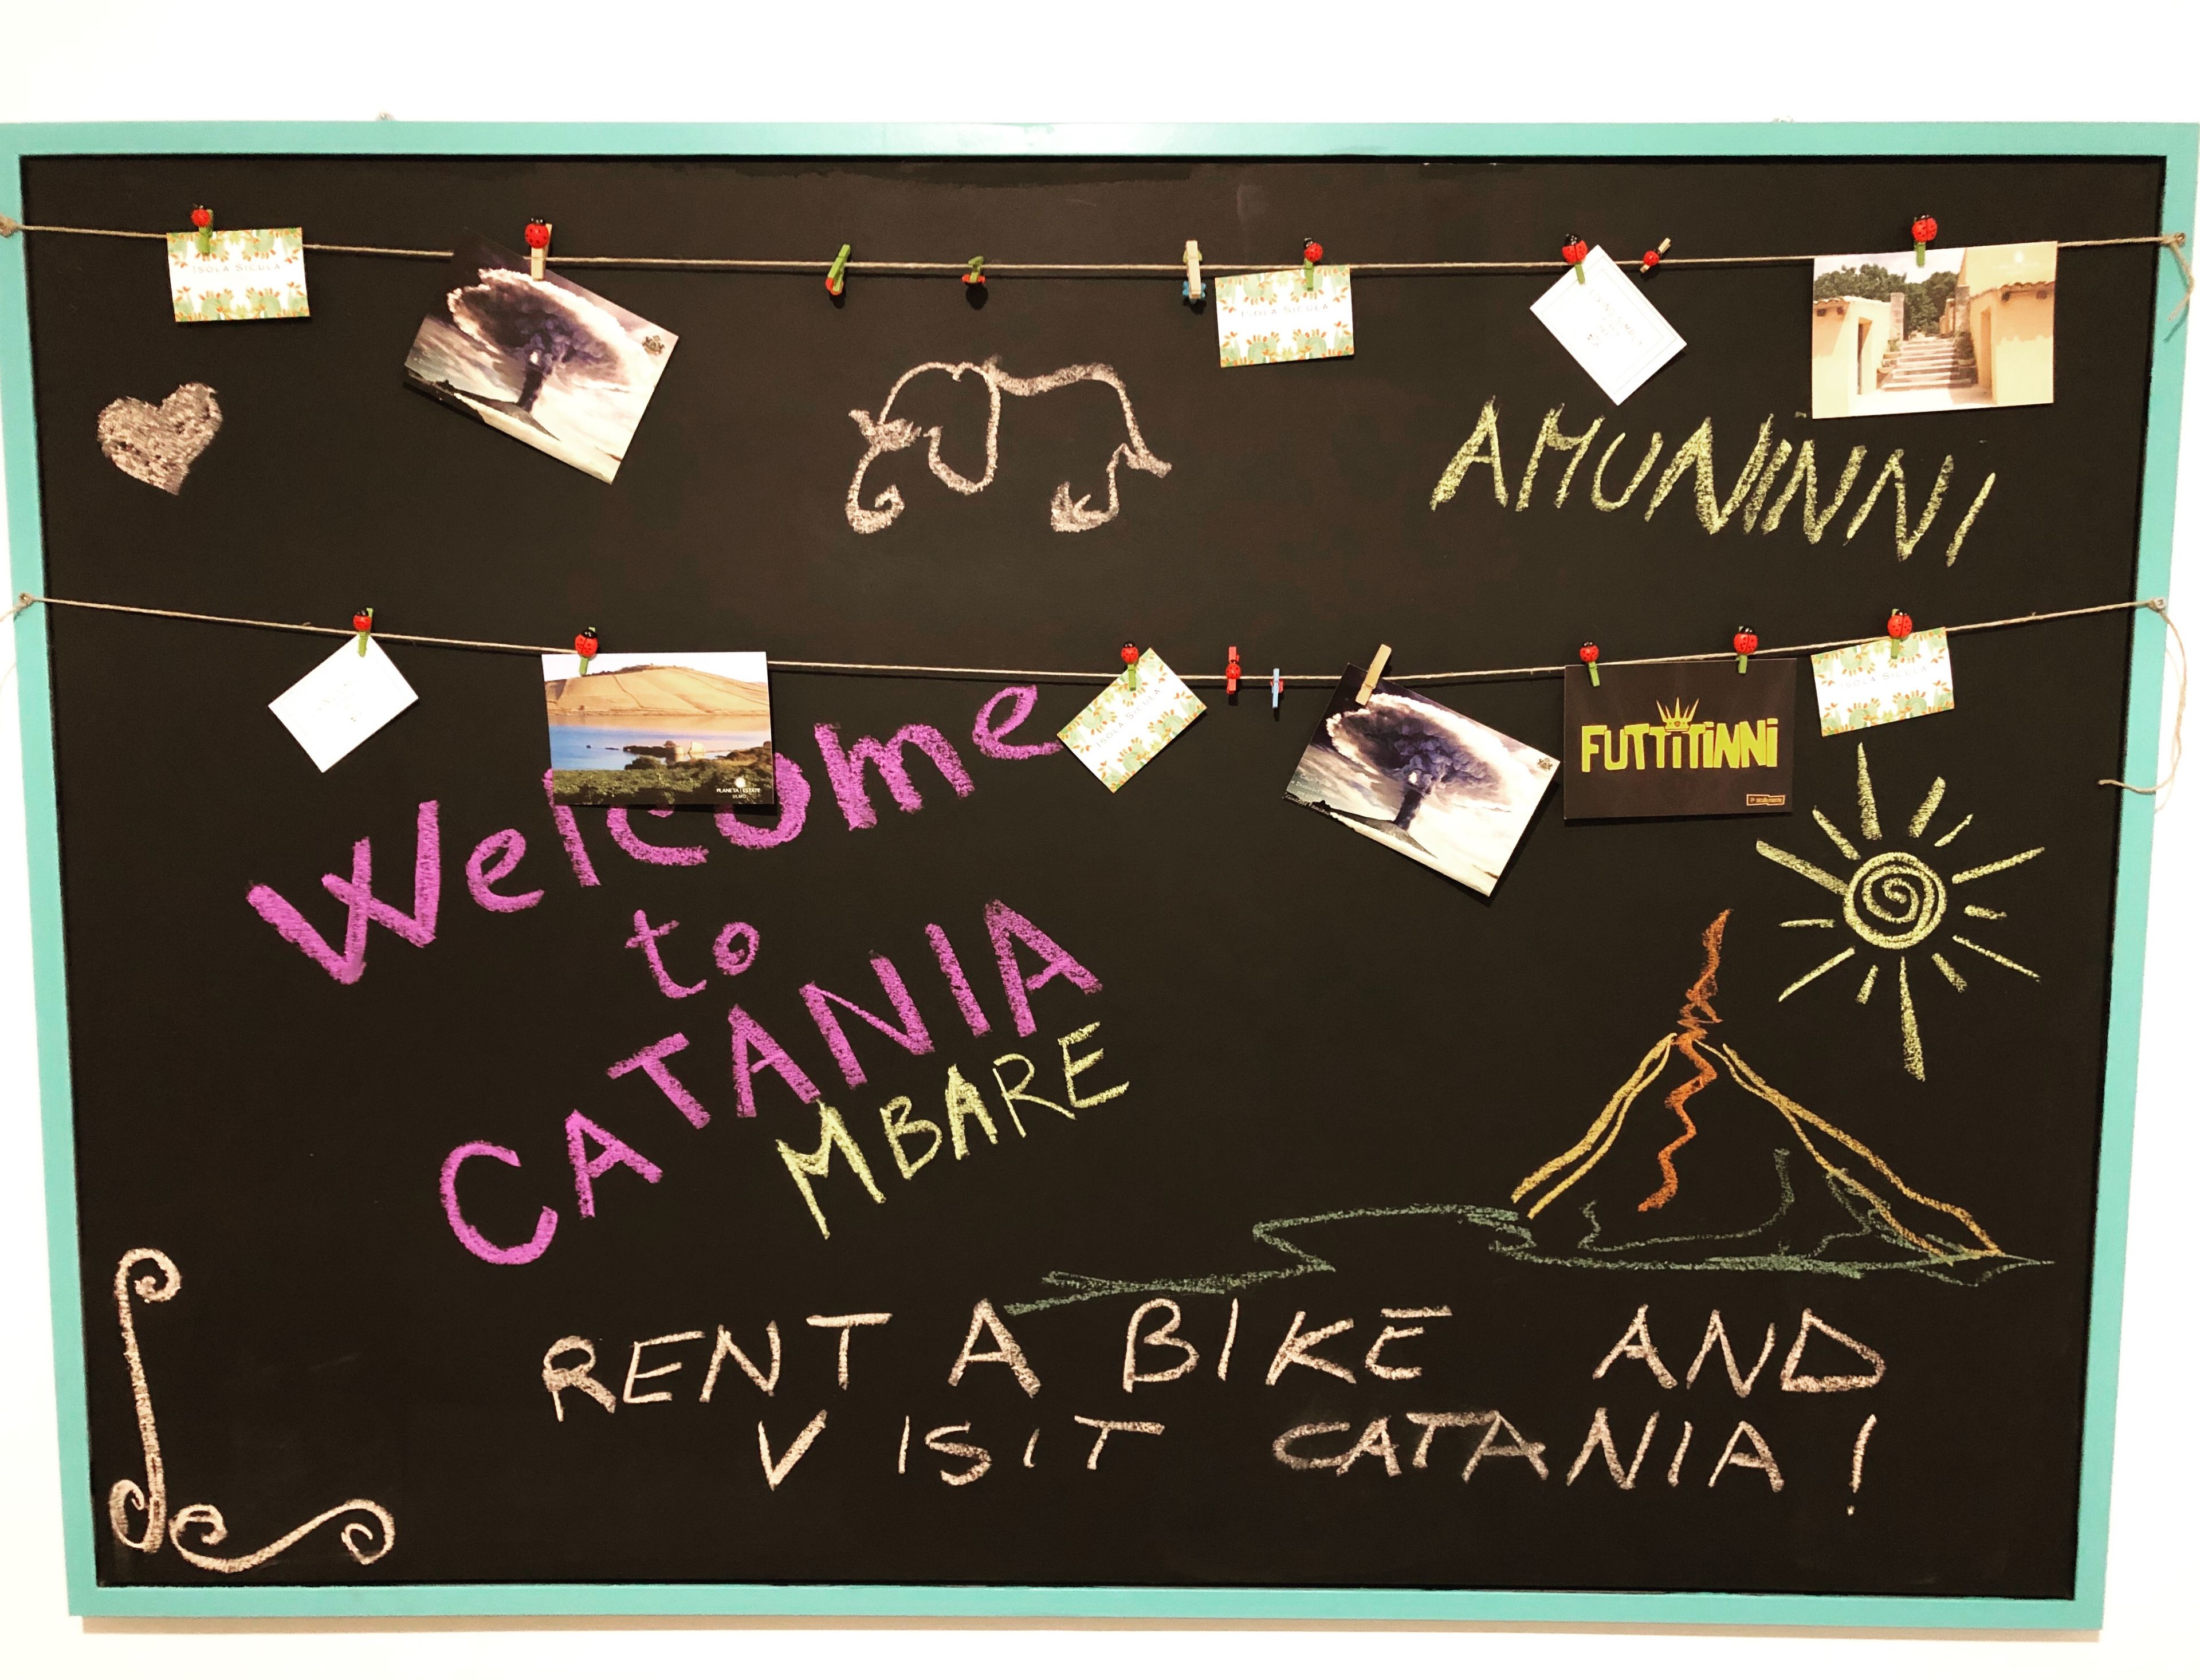 ISOLA SICULA
ISOLA SICULA
AMUNINNI
PLANETA ESTATE
ISOLA SICULA
FUTTITINNI
ISOLA SICULA
Welcome
to
CATANIA
MBARE
RENT A BIKE AND
VISIT CATANIA!